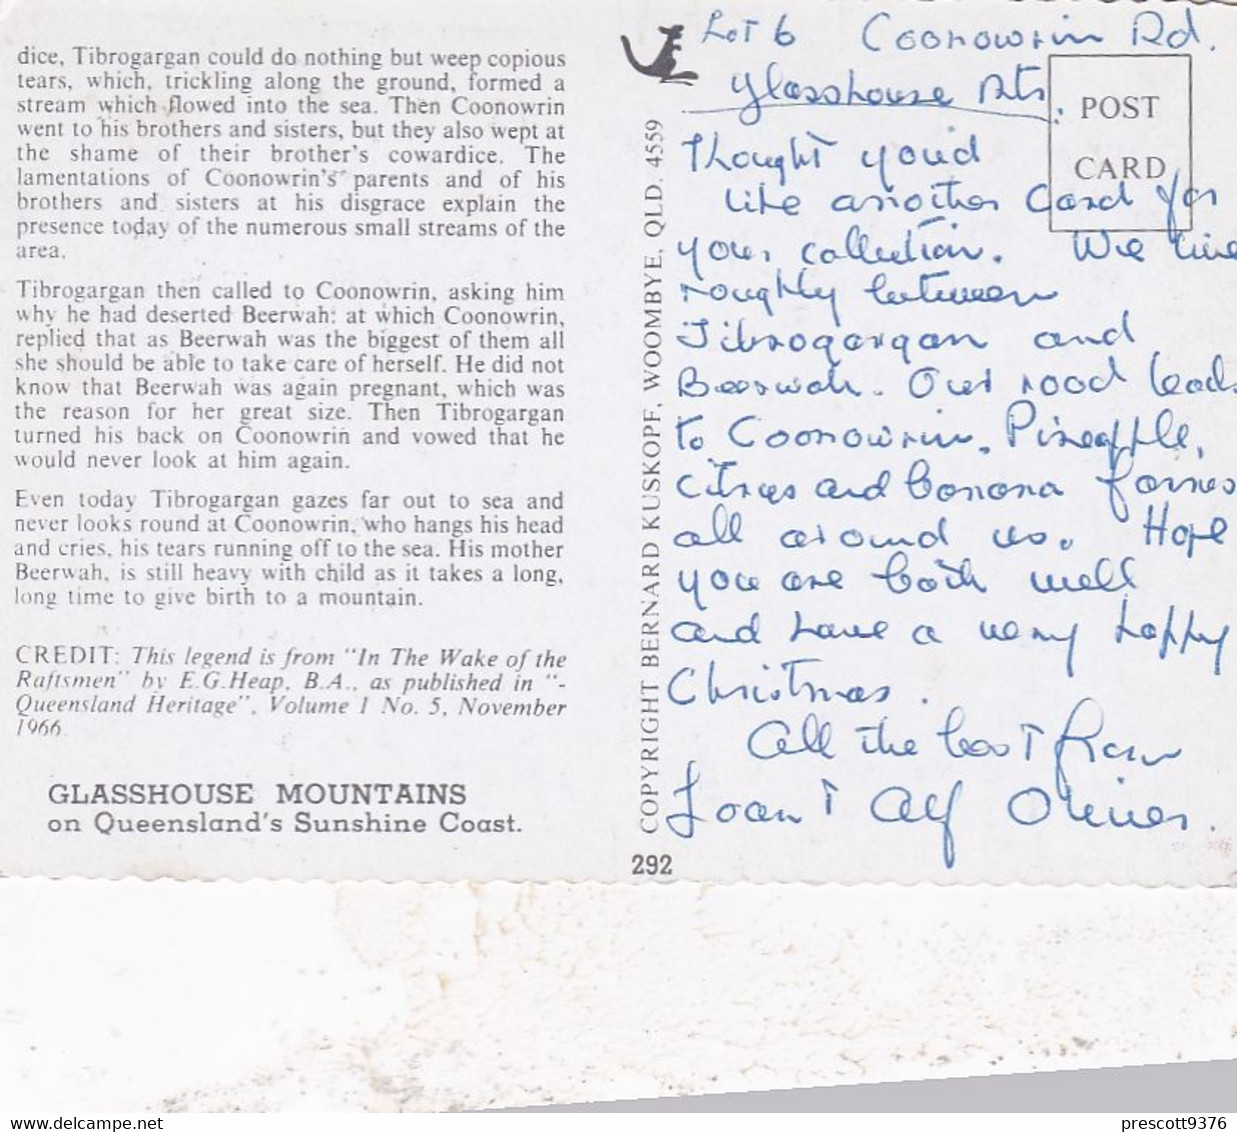 dice, Tibrogargan could do nothing but weep copious
tears, which, trickling along the ground, formed a
stream which flowed into the sea. Then Coonowrin
went to his brothers and sisters, but they also wept at
the shame of their brother's cowardice. The
lamentations of Coonowrin's parents and of his
brothers and sisters at his disgrace explain the
presence today of the numerous small streams of the
area.
Tibrogargan then called to Coonowrin, asking him
why he had deserted Beerwah: at which Coonowrin,
replied that as Beerwah was the biggest of them all
she should be able to take care of herself. He did not
know that Beerwah was again pregnant, which was
the reason for her great size. Then Tibrogargan
turned his back on Coonowrin and vowed that he
would never look at him again.
Even today Tibrogargan gazes far out to sea and
never looks round at Coonowrin, who hangs his head
and cries, his tears running off to the sea. His mother
Beerwah, is still heavy with child as it takes a long,
long time to give birth to a mountain.
CREDIT: This legend is from "In The Wake of the
Raftsmen" by E.G.Heap, B.A., as published in "-
Queensland Heritage", Volume 1 No. 5, November
1966.
GLASSHOUSE MOUNTAINS
on Queensland's Sunshine Coast.
COPYRIGHT BERNARD KUSKOPF, WOOMBYE, QLD. 4559
292
POST
CARD
Lot 6 Coonowrin Rd.
Glasshouse Mts.
Thought you'd
like another card for
your collection. We live
roughly between
Tibrogargan and
Beerwah. Our road leads
to Coonowrin. Pineapple,
citrus and banana farms
all around us. Hope
you are both well
and have a very happy
Christmas.
All the best from
Joan & Alf Oliver.
prescott9376